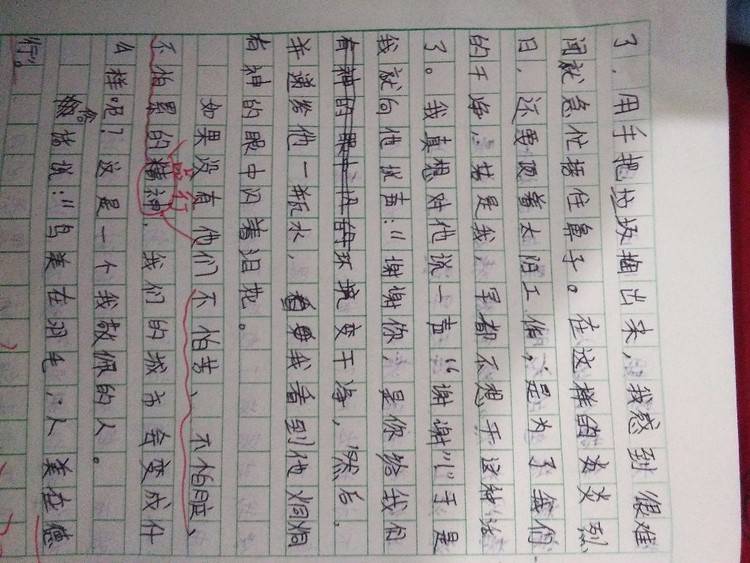 了，用手把垃圾掏出来，我感到很难
闻就急忙捂住鼻子。在这样的炎炎烈
日，还要顶着太阳工作，是为了我们
的干净，若是我，字都不想干这种活
了。我真想对他说一言“谢谢”！于是
我就向他道：“谢谢你，是你给我们
的环境变干净，然后，
并递给他一瓶水，我看到他炯炯
有神的眼中闪着泪花。
如果没有他们不怕苦、不怕脏、
不怕累的精神，我们的城市会变成什
么样呢？这是一个我敬佩的人。
俗话说：“鸟美在羽毛，人美在德
行”。